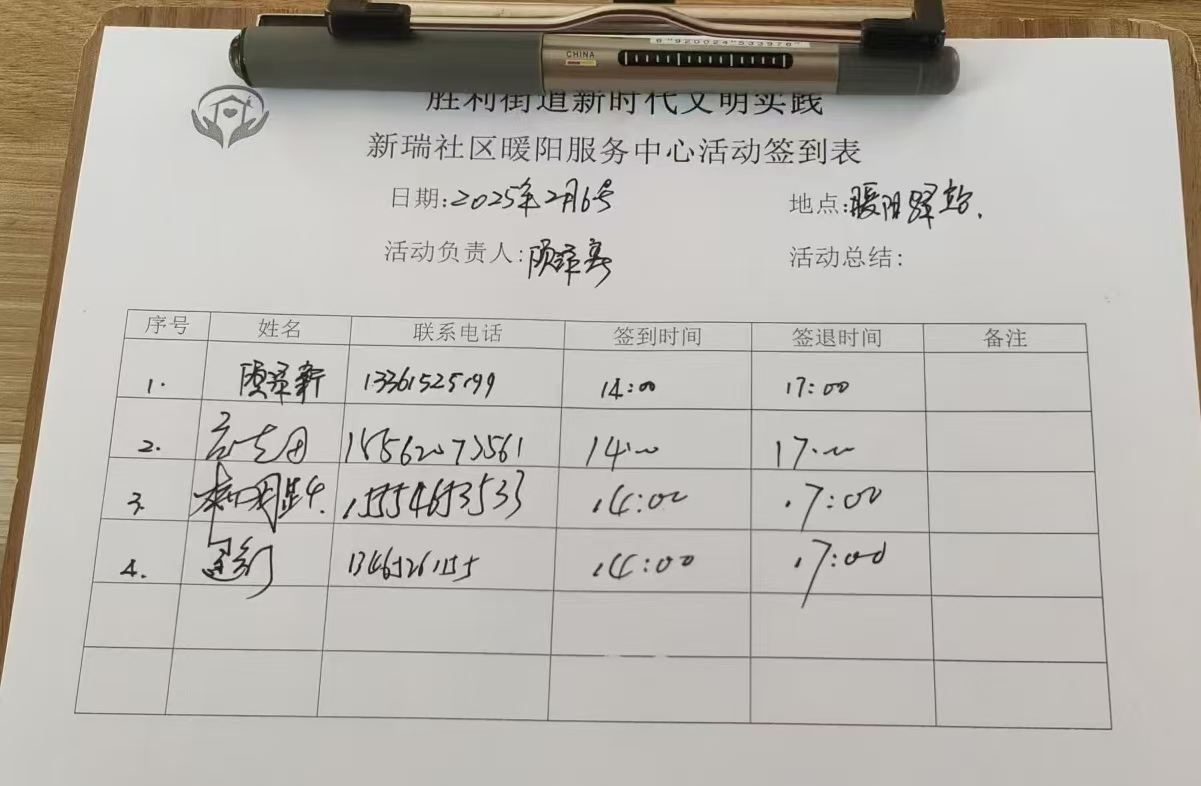 CHINA
6 920024 533976
胜利街道新时代文明实践
新瑞社区暖阳服务中心活动签到表
日期:2025年2月6号 地点:暖阳驿站.
活动负责人: 活动总结:
序号 姓名 联系电话 签到时间 签退时间 备注
1. 14:00 17:00
2. 15562073561 14:00 17:00
3. 15554653533 14:00 17:00
4. 14:00 17:00